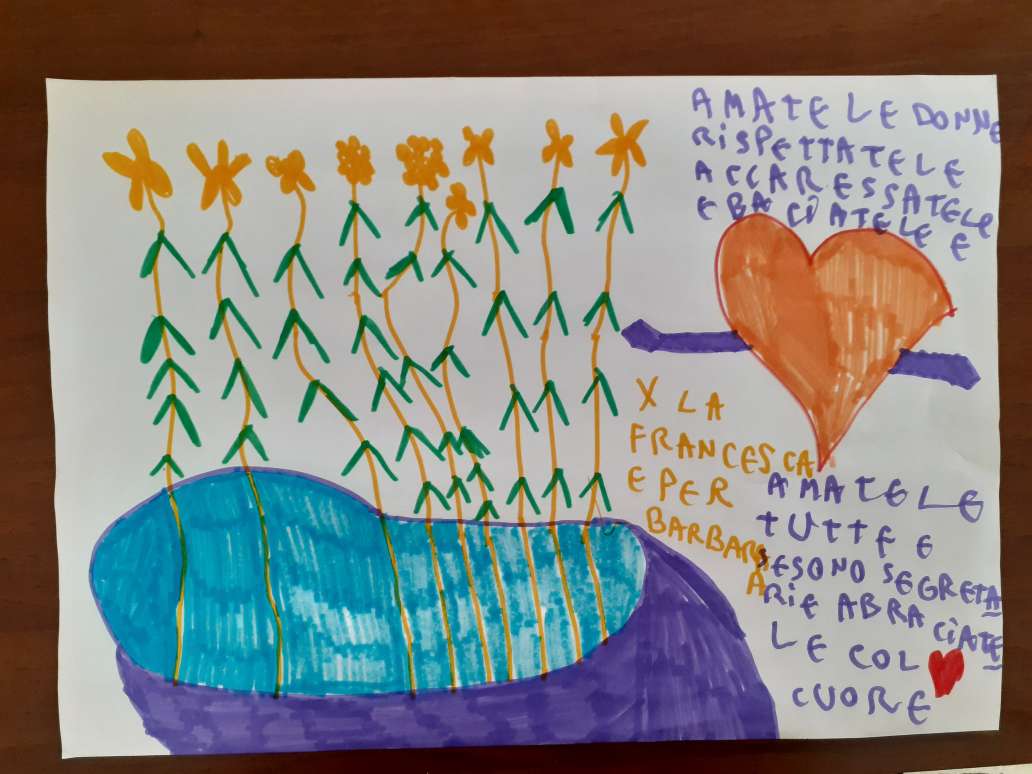 AMATE LE DONNE
RISPETTATELE
ACCARESSATELE
E BACIATELE E
X LA
FRANCESCA
E PER
BARBAR
A
AMATELE
TUTTE E
SESONO SEGRETA
RIE ABRACIATE
LE COL
CUORE